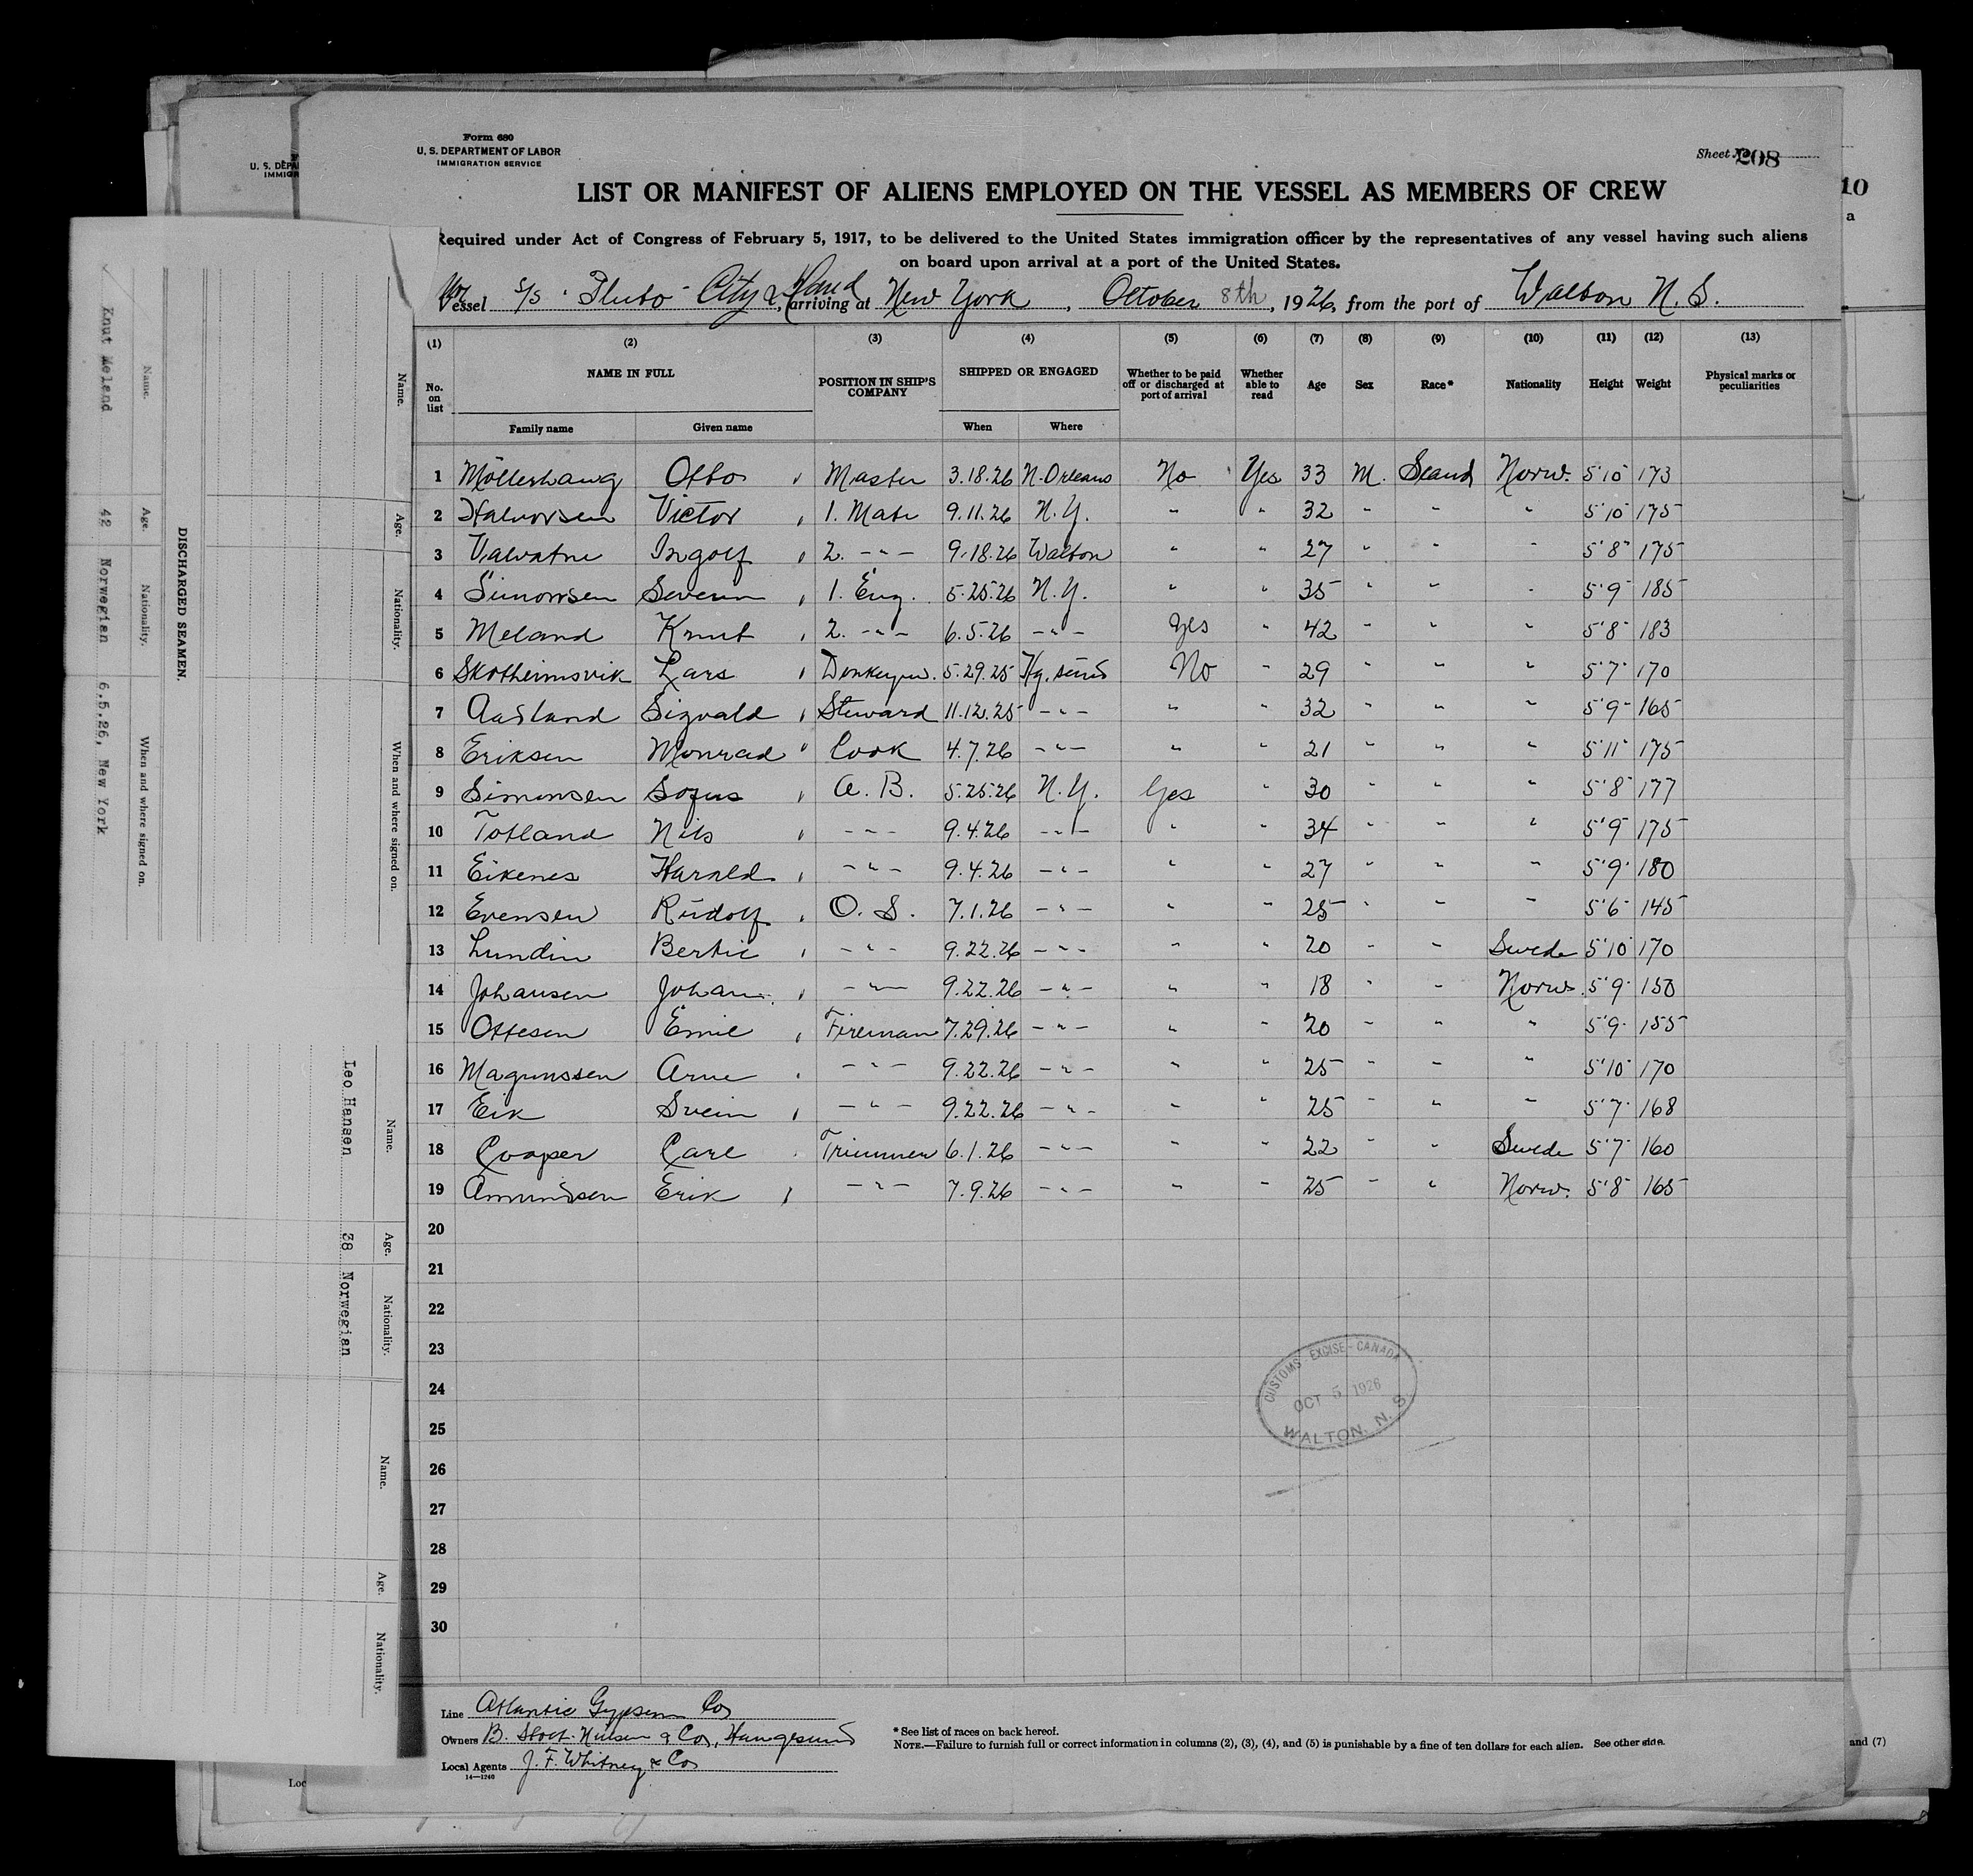 Form 680
U. S. DEPARTMENT OF LABOR
IMMIGRATION SERVICE
Sheet No. 208
LIST OR MANIFEST OF ALIENS EMPLOYED ON THE VESSEL AS MEMBERS OF CREW
Required under Act of Congress of February 5, 1917, to be delivered to the United States immigration officer by the representatives of any vessel having such aliens
on board upon arrival at a port of the United States.
Nor Vessel S/S "Pluto" City & Hand, arriving at New York, October 8th, 1926, from the port of Walton N. S.
(1) (2) (3) (4) (5) (6) (7) (8) (9) (10) (11) (12) (13)
No. on list NAME IN FULL Family name Given name POSITION IN SHIP'S COMPANY SHIPPED OR ENGAGED When Where Whether to be paid off or discharged at port of arrival Whether able to read Age Sex Race* Nationality Height Weight Physical marks or peculiarities
1 Möllerhaug Otto Master 3.18.26 N. Orleans No Yes 33 M. Scand Norw. 5'10" 173
2 Halvorsen Victor 1. Mate 9.11.26 N.Y. " " 32 " " " 5'10" 175
3 Valvatne Ingolf 2. -"- 9.18.26 Walton " " 27 " " " 5'8" 175
4 Simonsen Severin 1. Eng. 5.25.26 N.Y. " " 35 " " " 5'9" 185
5 Meland Knut 2. -"- 6.5.26 -"- Yes " 42 " " " 5'8" 183
6 Skotheimsvik Lars Donkeym. 5.29.25 Hg. sund No " 29 " " " 5'7" 170
7 Aasland Sigvald Steward 11.12.25 -"- " " 32 " " " 5'9" 165
8 Eriksen Monrad Cook 4.7.26 -"- " " 21 " " " 5'11" 175
9 Simonsen Sofus A. B. 5.25.26 N.Y. Yes " 30 " " " 5'8" 177
10 Tofland Nils -"- 9.4.26 -"- " " 34 " " " 5'9" 175
11 Eikenes Harald -"- 9.4.26 -"- " " 27 " " " 5'9" 180
12 Evensen Rudolf O. S. 7.1.26 -"- " " 25 " " " 5'6" 145
13 Lundin Bertie -"- 9.22.26 -"- " " 20 " " Swede 5'10" 170
14 Johansen Johan -"- 9.22.26 -"- " " 18 " " Norw. 5'9" 150
15 Ottesen Emil Fireman 7.29.26 -"- " " 20 " " " 5'9" 155
16 Magnussen Arne -"- 9.22.26 -"- " " 25 " " " 5'10" 170
17 Eik Svein -"- 9.22.26 -"- " " 25 " " " 5'7" 168
18 Cooper Carl Trimmer 6.1.26 -"- " " 22 " " Swede 5'7" 160
19 Amundsen Erik -"- 7.9.26 -"- " " 25 " " Norw. 5'8" 165
20
21
22
23
24
25
26
27
28
29
30
CUSTOMS - EXCISE - CANADA
OCT 5 1926
WALTON, N. S.
Line Atlantic Gypsum Co
Owners B. Stolt-Nielsen & Co, Haugesund
Local Agents J. F. Whitney & Co
14—1240
* See list of races on back hereof.
NOTE.—Failure to furnish full or correct information in columns (2), (3), (4), and (5) is punishable by a fine of ten dollars for each alien. See other side.
DISCHARGED SEAMEN.
Name. Age. Nationality. When and where signed on.
Knut Meland 42 Norwegian 6.5.26, New York
Name. Age. Nationality. When and where signed on.
Name. Age. Nationality.
Leo Hansen 38 Norwegian
Name. Age. Nationality.
U. S. DEPA
IMMIGR
10
a
and (7)
Loc